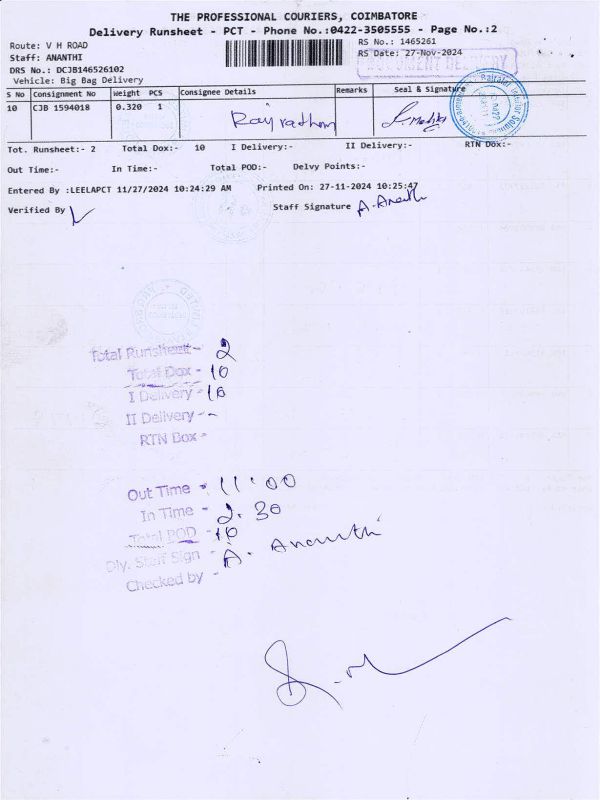 THE PROFESSIONAL COURIERS, COIMBATORE
Delivery Runsheet - PCT - Phone No.:0422-3505555 - Page No.:2
Route: V H ROAD
RS No.: 1465261
Staff: ANANTHI
RS Date: 27-Nov-2024
DRS No.: DCJB146526102
DOCUMENT DELIVERY
Vehicle: Big Bag Delivery
S No Consignment No Weight PCS Consignee Details Remarks Seal & Signature
10 CJB 1594018 0.320 1
Tot. Runsheet:- 2 Total Dox:- 10 I Delivery:- II Delivery:- RTN Dox:-
Out Time:- In Time:- Total POD:- Delvy Points:-
Entered By :LEELAPCT 11/27/2024 10:24:29 AM Printed On: 27-11-2024 10:25:47
Verified By Staff Signature A. Ananthi
Total Runsheet - 2
Total Dox - 10
I Delivery - 10
II Delivery - -
RTN Box -
Out Time - 11:00
In Time - 2.30
Total POD - 10
Dly. Staff Sign - A. Ananthi
Checked by -